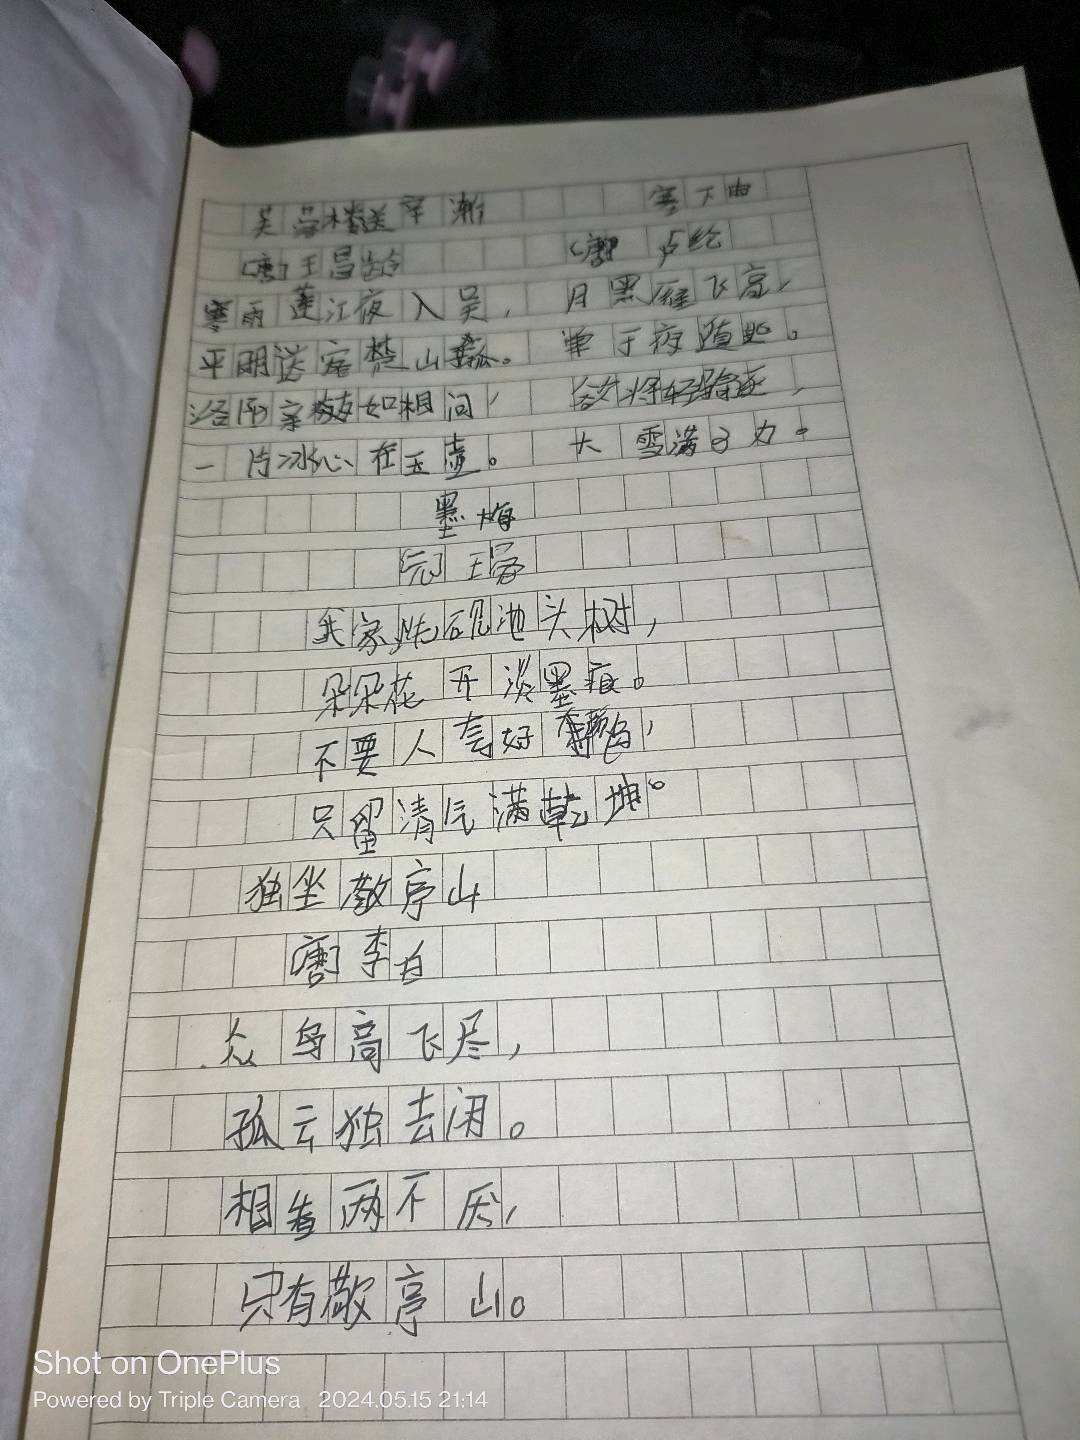 芙蓉楼送辛渐
塞下曲
[唐]王昌龄
[唐] 卢纶
寒雨莲江夜入吴，
月黑雁飞高，
平明送客楚山孤。
单于夜随逃。
洛阳亲友如相问，
将轻骑逐，
一片冰心在玉壶。
大雪满弓刀。
墨梅
[元]王冕
我家洗砚池头树，
朵朵花开淡墨痕。
不要人夸好颜色，
只留清气满乾坤。
独坐敬亭山
[唐]李白
众鸟高飞尽，
孤云独去闲。
相看两不厌，
只有敬亭山。
Shot on OnePlus
Powered by Triple Camera 2024.05.15 21:14